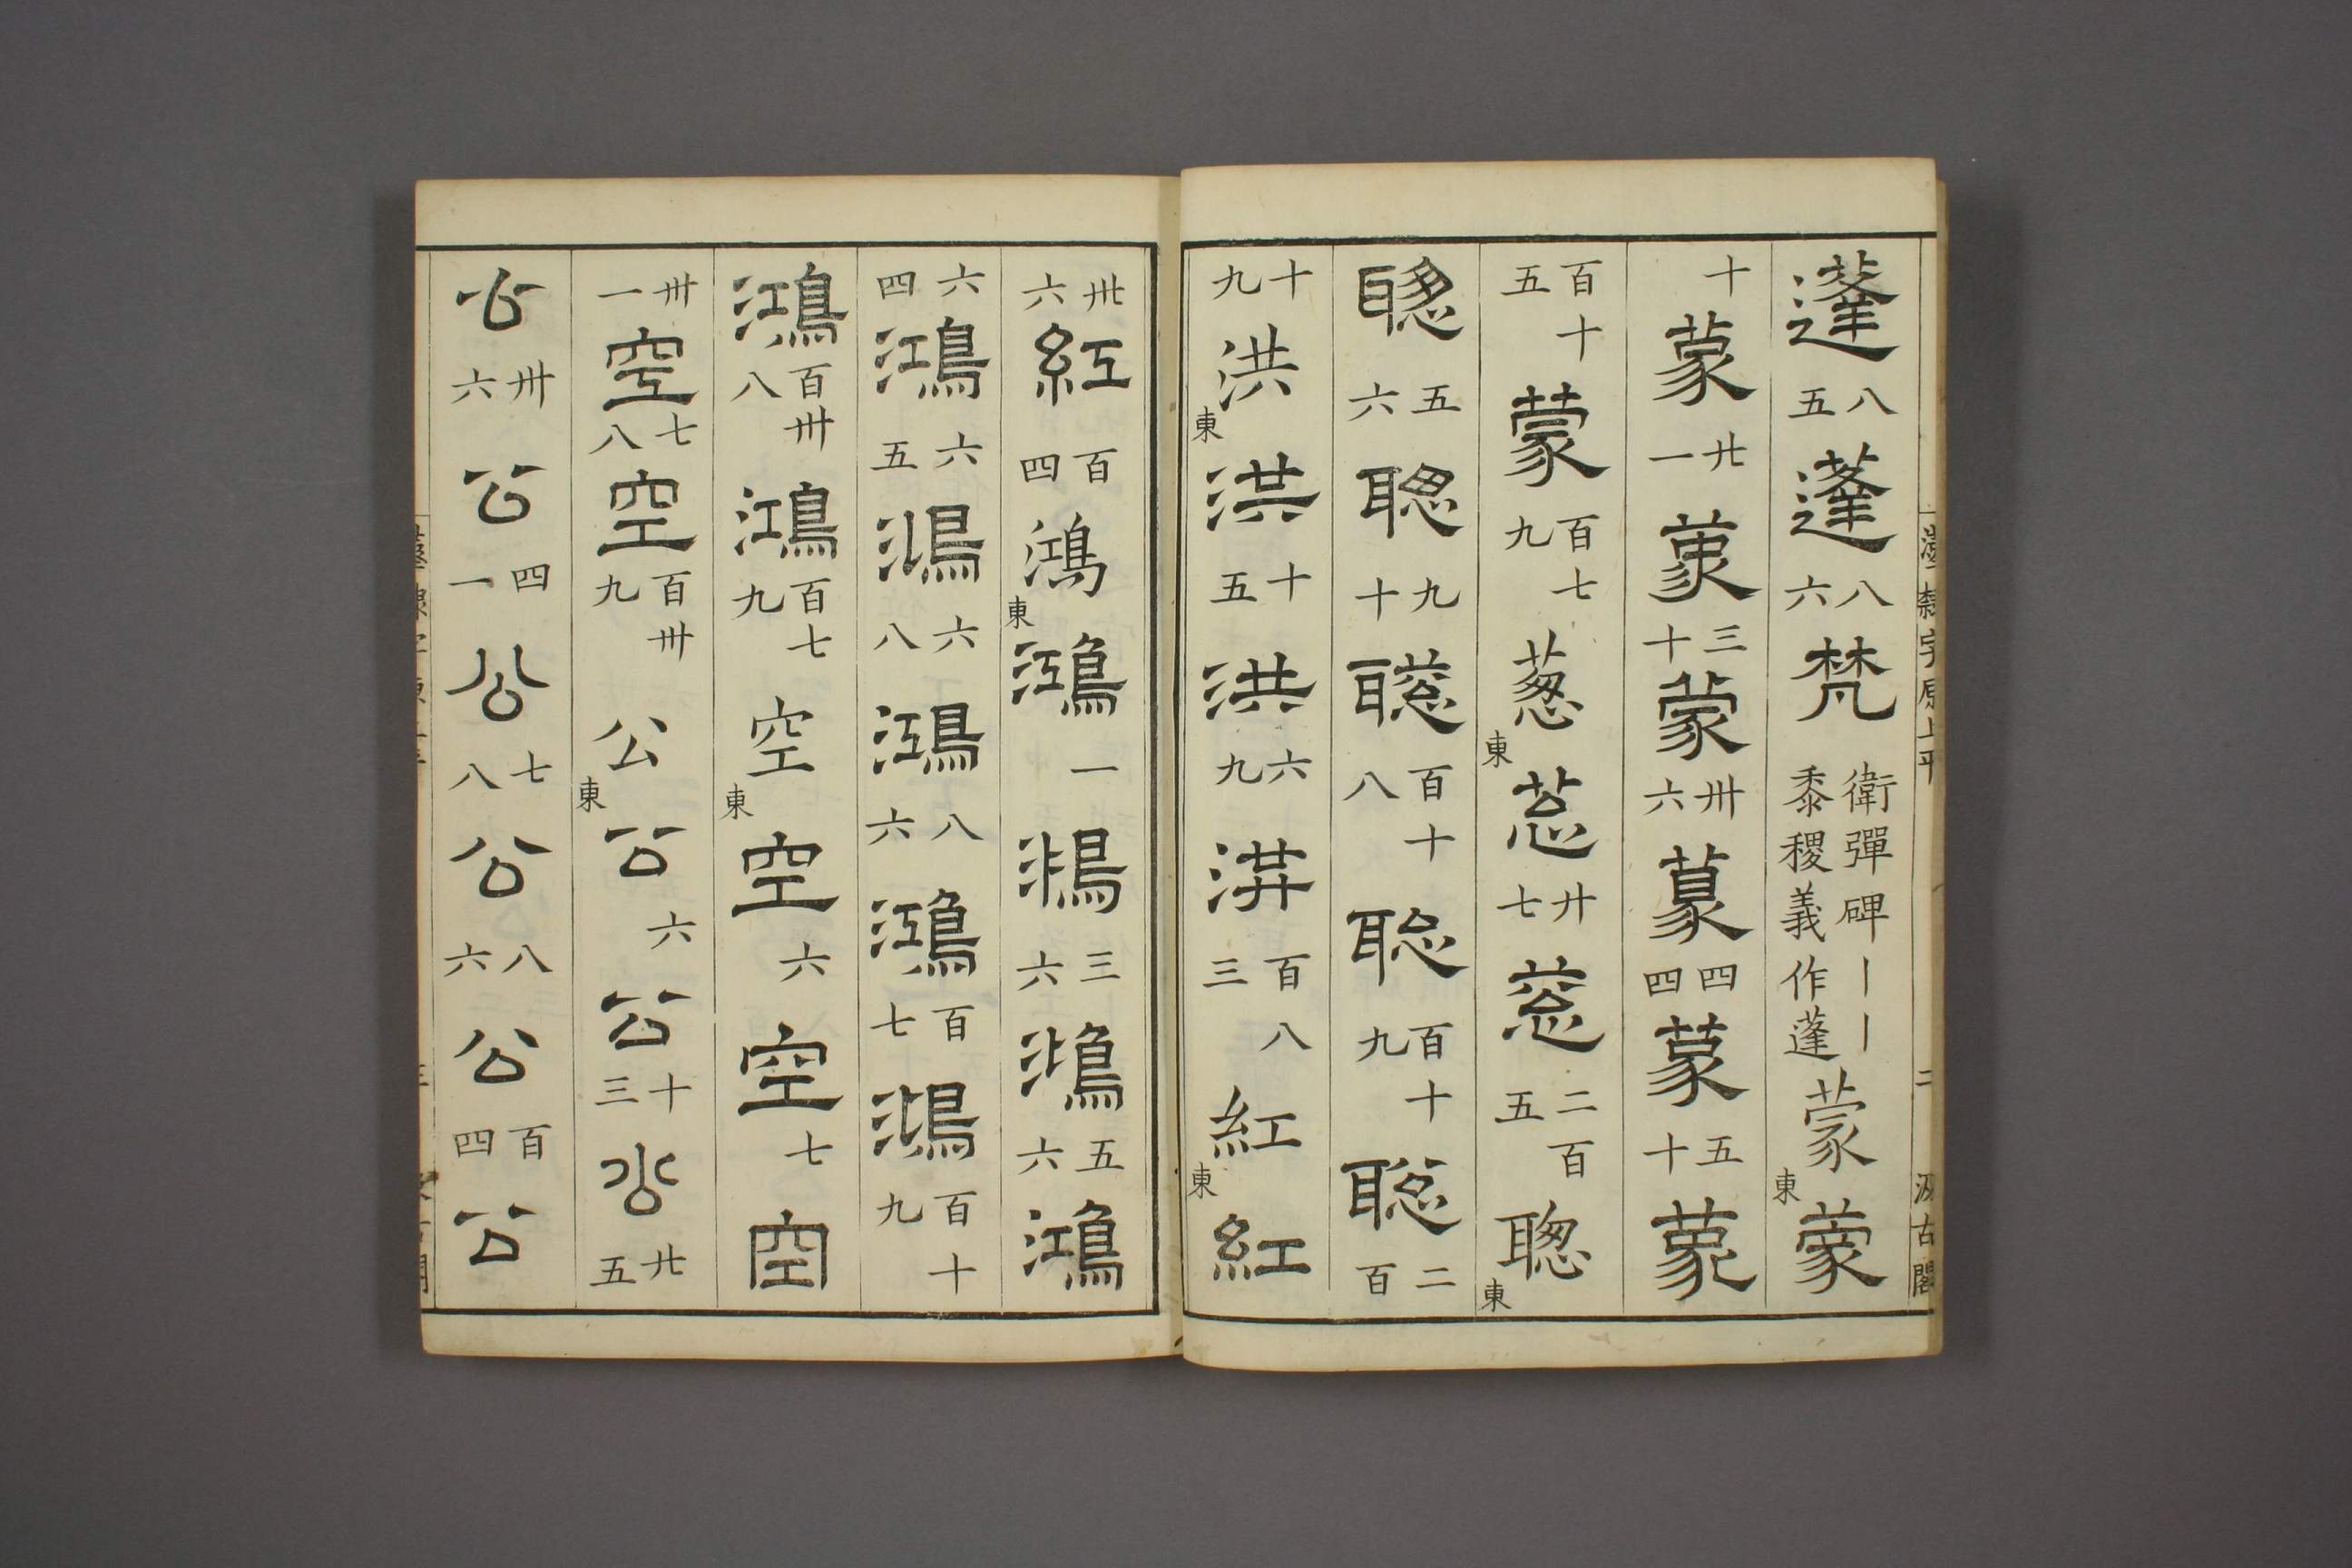 漢隸字原上平 二 汲古閣
蓬 八五 蓬 八六 梵 衛彈碑丨丨黍稷義作蓬 蒙 東 蒙
十 蒙 廿一 蒙 三十 蒙 卅六 蒙 四四 蒙 五十 蒙
百十五 蒙 百七九 葱 東 葱 廿七 葱 二百五 聰 東
聰 五六 聰 九十 聰 百十八 聰 百十九 聰 二百
十九 洪 東 洪 十五 洪 六九 洪 百八三 紅 東 紅
卅六 紅 百四 鴻 東 鴻 一 鴻 三六 鴻 五六 鴻
六四 鴻 六五 鴻 六八 鴻 八六 鴻 百七 鴻 百十九
鴻 百卅八 鴻 百七九 空 東 空 六 空 七 空
卅一 空 七八 空 百卅九 公 東 公 六 公 十三 公 廿五
公 卅六 公 四一 公 七八 公 八六 公 百四 公